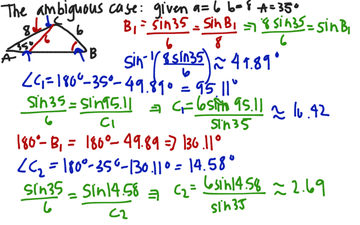 The ambiguous case: given a=6 b=8 A=35°
8 C 6 6 35° A B
B₁ = sin35/6 = sinB₁/8 ⇒ 8sin35/6 = sinB₁
sin⁻¹(8sin35/6) ≈ 49.89°
∠C₁ = 180° - 35° - 49.89° = 95.11°
sin35/6 = sin95.11/C₁ ⇒ C₁ = 6sin 95.11/sin35 ≈ 10.42
180° - B₁ = 180° - 49.89 ⇒ 130.11°
∠C₂ = 180° - 35° - 130.11° = 14.58°
sin35/6 = sin14.58/C₂ ⇒ C₂ = 6sin14.58/sin35 ≈ 2.69